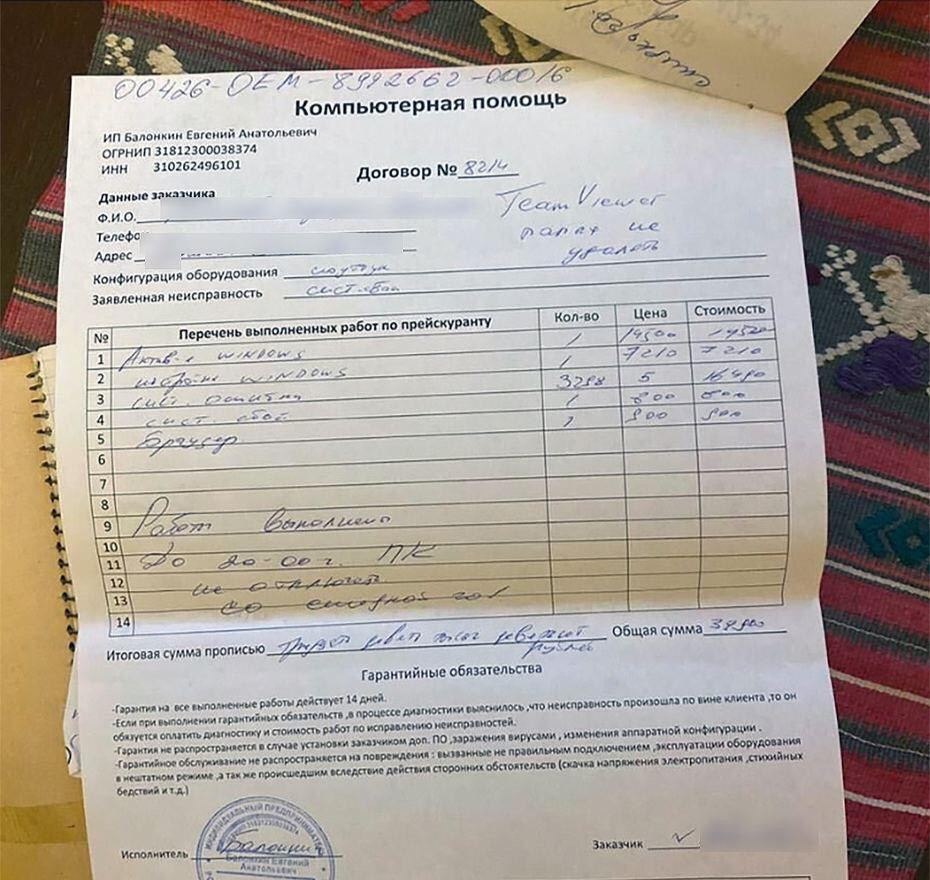 00426-OEM-8992662-00016
Компьютерная помощь
ИП Балонкин Евгений Анатольевич
ОГРНИП 31812300038374
ИНН 310262496101
Договор № 8214
Данные заказчика
TeamViewer
Ф.И.О.
папку не
Телефо
удалять
Адрес
Конфигурация оборудования ноутбук
Заявленная неисправность сист. сбой
№ Перечень выполненных работ по прейскуранту Кол-во Цена Стоимость
1 Актив-я WINDOWS 1 14500 14500
2 WINDOWS 1 7210 7210
3 сист. ошибки 3298 5 16490
4 сист. сбой 1 800 800
5 Браузер 1 900 900
6
7
8
9 Работ выполнено
10
11 До 20-00 г. ПК
12 не отключать
13 со
14
Итоговая сумма прописью рублей Общая сумма
Гарантийные обязательства
-Гарантия на все выполненные работы действует 14 дней.
-Если при выполнении гарантийных обязательств ,в процессе диагностики выяснилось ,что неисправность произошла по вине клиента ,то он
обязуется оплатить диагностику и стоимость работ по исправлению неисправностей.
-Гарантия не распространяется в случае установки заказчиком доп. ПО ,заражения вирусами , изменения аппаратной конфигурации .
-Гарантийное обслуживание не распространяется на повреждения : вызванные не правильным подключением ,эксплуатации оборудования
в нештатном режиме ,а так же происшедшим вследствие действия сторонних обстоятельств (скачка напряжения электропитания ,стихийных
бедствий и т.д.)
ИНДИВИДУАЛЬНЫЙ ПРЕДПРИНИМАТЕЛЬ
Исполнитель Балонкин
Заказчик
Балонкин Евгений
Анатольевич